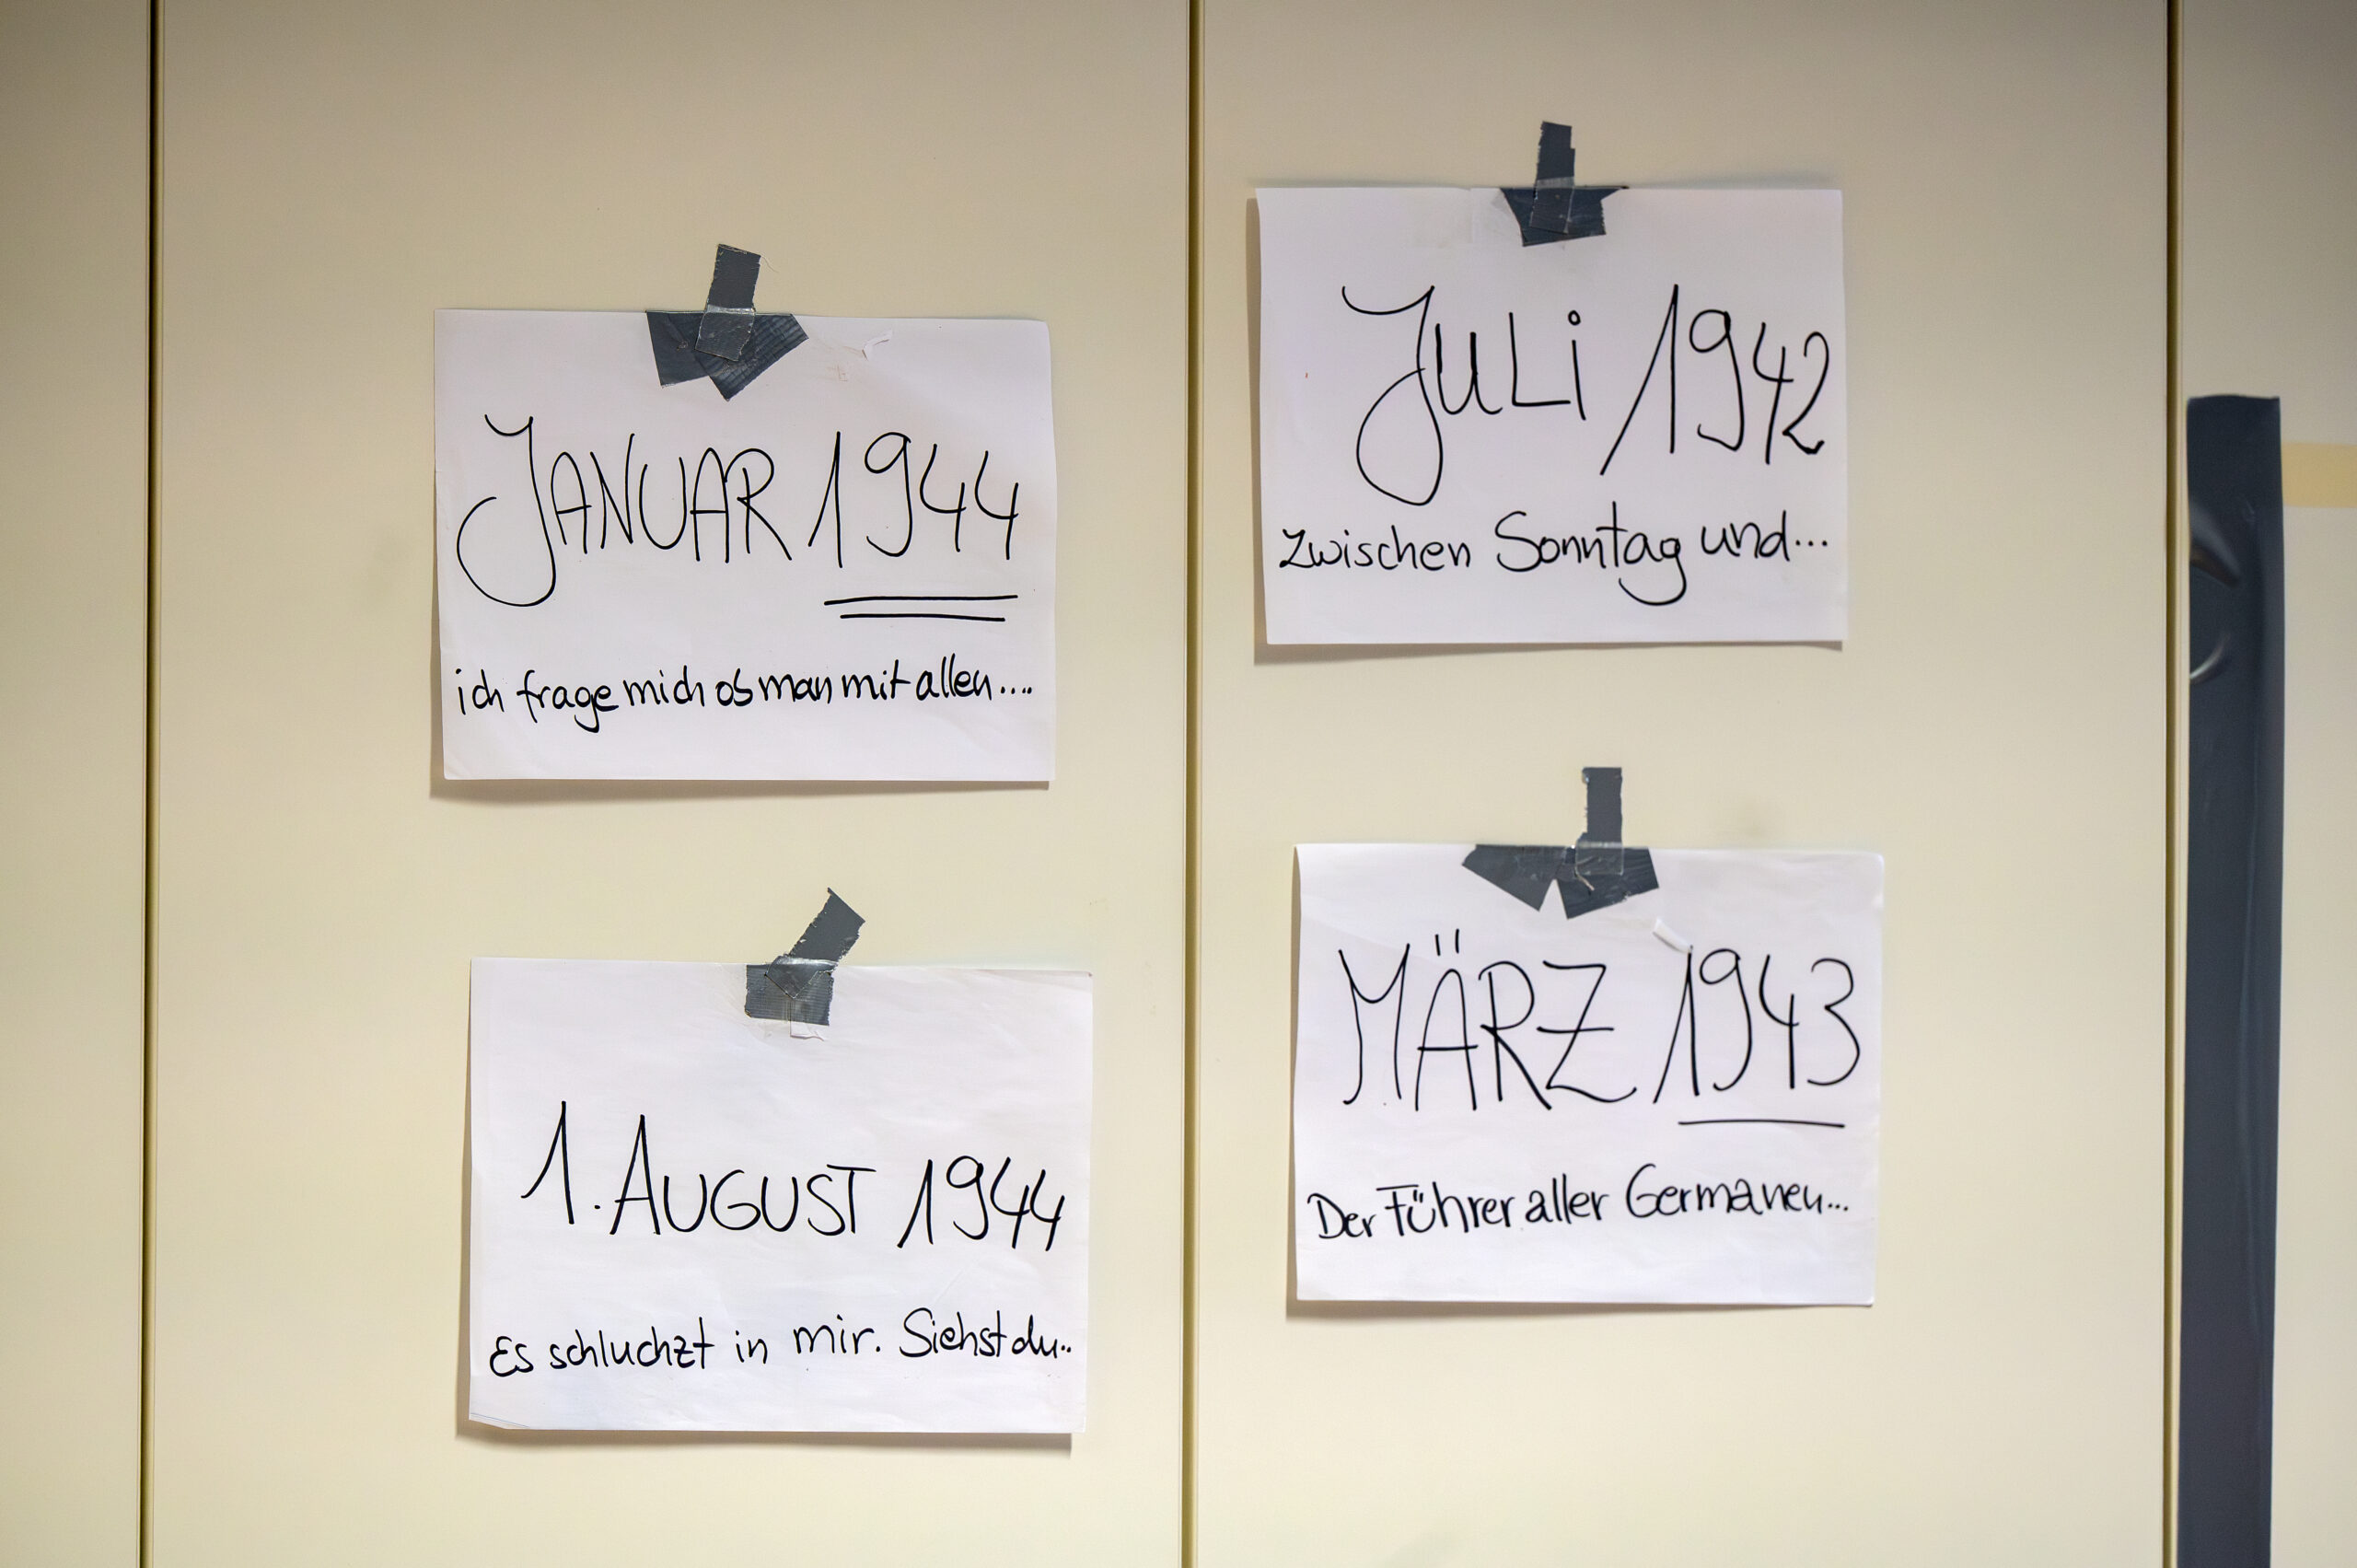 JANUAR 1944
ich frage mich ob man mit allen....
1. AUGUST 1944
Es schluchzt in mir. Siehst du..
JULi 1942
Zwischen Sonntag und...
MÄRZ 1943
Der Führer aller Germanen...